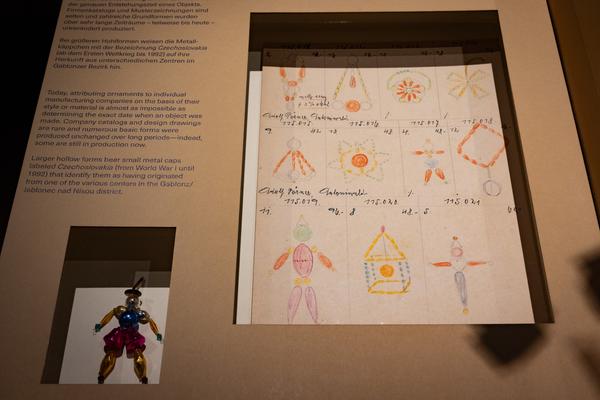 der genauen Entstehungszeit eines Objekts.
Firmenkataloge und Musterzeichnungen sind
selten und zahlreiche Grundformen wurden
über sehr lange Zeiträume – teilweise bis heute –
unverändert produziert.
Bei größeren Hohlformen weisen die Metall-
käppchen mit der Bezeichnung Czechoslovakia
(ab dem Ersten Weltkrieg bis 1992) auf ihre
Herkunft aus unterschiedlichen Zentren im
Gablonzer Bezirk hin.
Today, attributing ornaments to individual
manufacturing companies on the basis of their
style or material is almost as impossible as
determining the exact date when an object was
made. Company catalogs and design drawings
are rare and numerous basic forms were
produced unchanged over long periods—indeed,
some are still in production now.
Larger hollow forms bear small metal caps
labeled Czechoslovakia (from World War I until
1992) that identify them as having originated
from one of the various centers in the Gablonz/
Jablonec nad Nisou district.
115.015 115.016 115.017 115.018
9. 42.
Adolf
115.019. 115.020 115.021
11. 94.- 8 48.- 5.